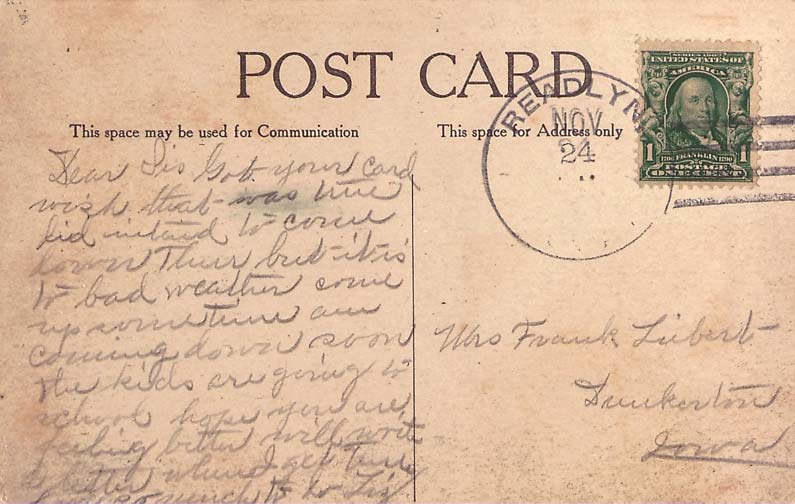 POST CARD
This space may be used for Communication
This space for Address only
READLYN
NOV
24
SERIES 1902
UNITED STATES OF
AMERICA
1 1706 FRANKLIN 1790 1
POSTAGE
ONE CENT
Dear Sis Got your card
wish that was true
did intend to come
down Thur but it is
to bad weather come
up sometime am
coming down soon
the kids are going to
school hope you are
feeling better will write
a letter when I get time
so much to do Sis
Mrs Frank Liebert
Dunkerton
Iowa